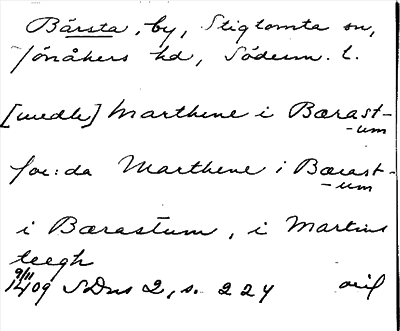 Bärsta, by, Stigtomta sn,
Jönåkers hd, Söderm. l.
[medh] Marthene i Bærast-
-um
for:da Marthene i Bærast-
-um
i Bærastum, i Martins
teegh
9/11
1409 SDns 2, s. 224 avil